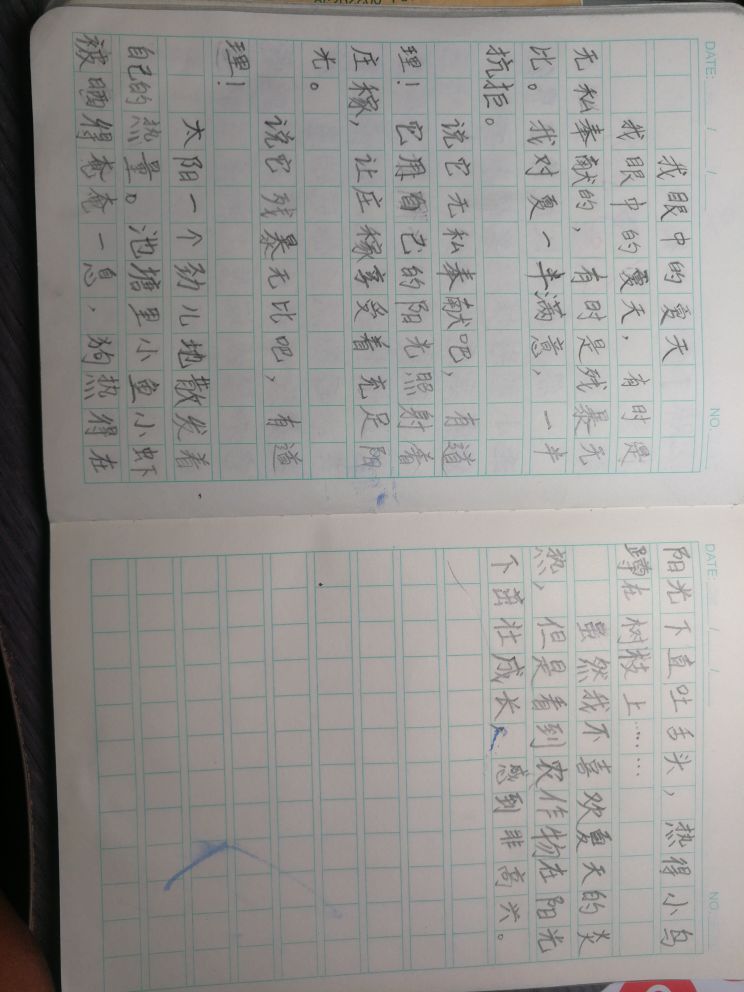 DATE: / /
NO.
我眼中的夏天
我眼中的夏天，有时是
无私奉献的，有时是残暴无
比。我对夏一半满意，一半
抗拒。
说它无私奉献吧，有道
理！它用自己的阳光照射着
庄稼，让庄稼享受着充足阳
光。
说它残暴无比吧，有道
理！
太阳一个劲儿地散发着
自己的热量。池塘里小鱼小虾
被晒得奄奄一息，狗热得在
DATE: / /
NO.
阳光下直吐舌头，热得小鸟
蹲在树枝上……
虽然我不喜欢夏天的炎
热，但是看到农作物在阳光
下茁壮成长，感到非高兴。